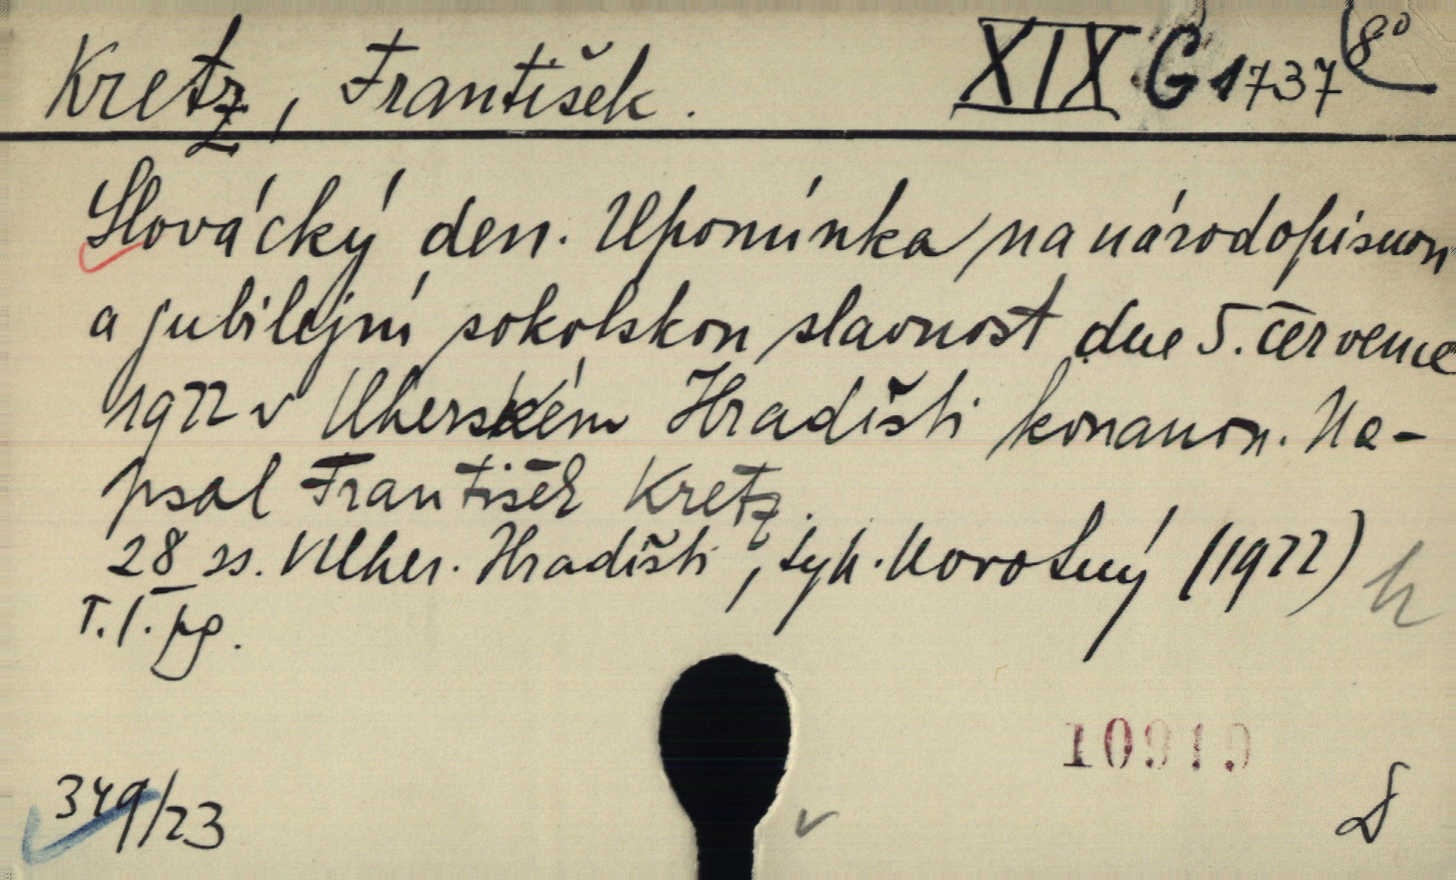 Kretz, František. XIX G 1737 8°
Slovácký den. Upomínka na národopisnou
a jubilejní sokolskou slavnost dne 5. července
1922 v Uherském Hradišti konanou. Na-
psal František Kretz.
28 ss. V Uher. Hradišti, typ. Novotný (1922)
T. l. pg.
10919
349/23